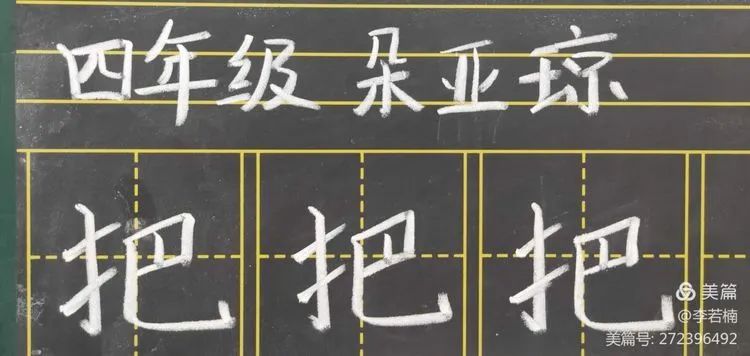 四年级 朵亚琼
把 把 把
美篇
@李若楠
美篇号: 272396492